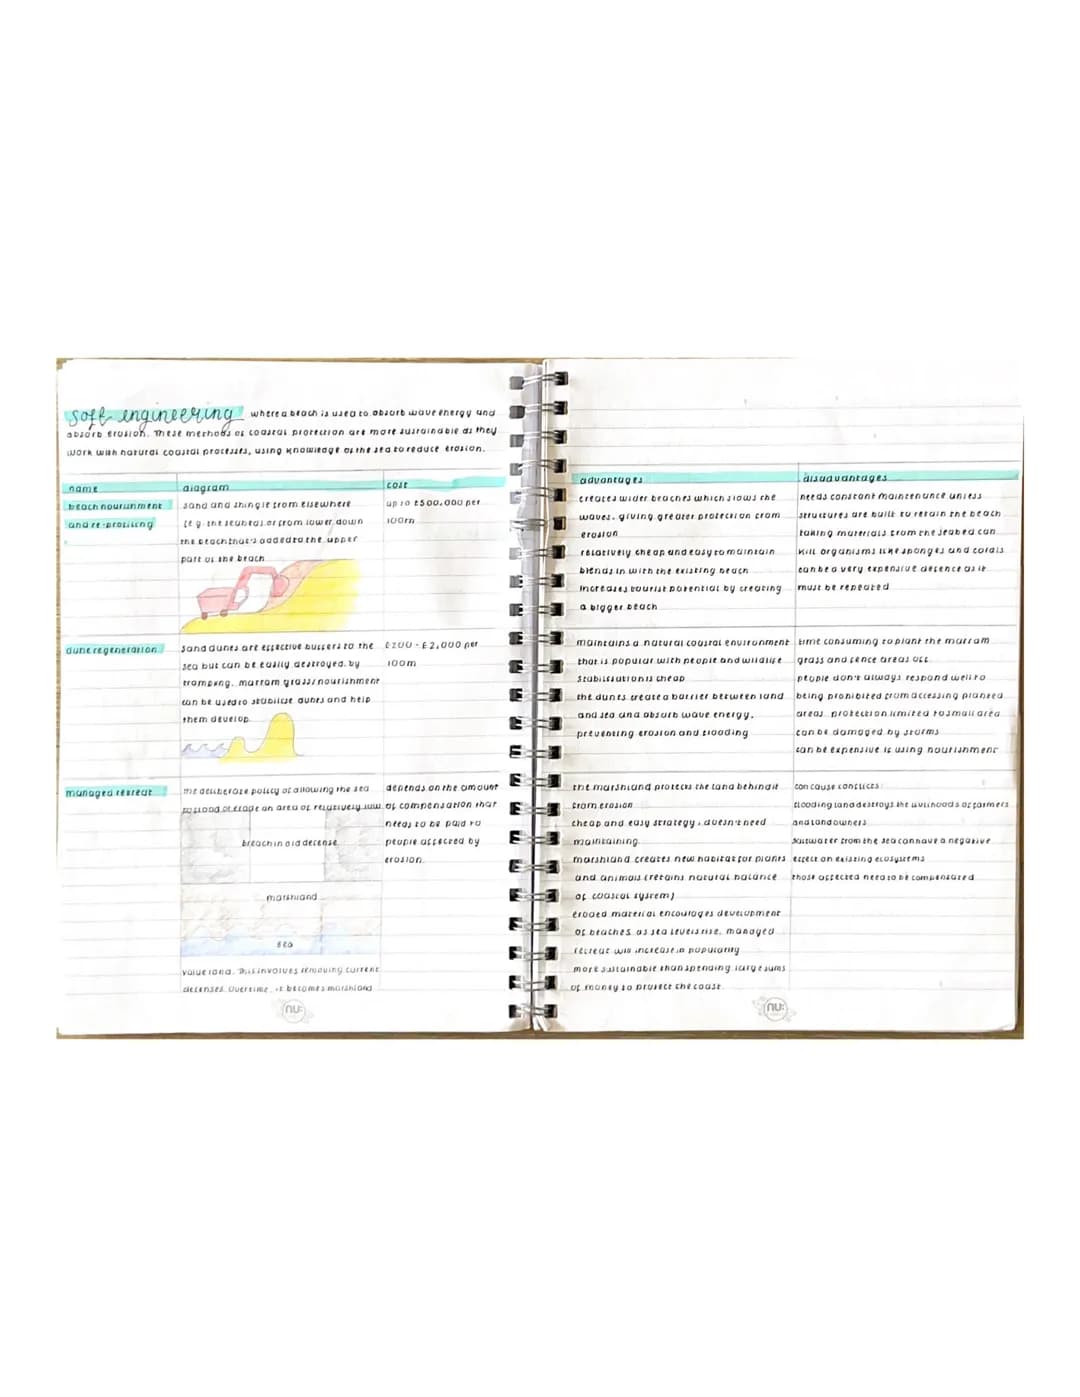 soft engineering where a beach is used to absorb wave energy and
absorb erosion. These methods of coastal protection are more sustainable as they
work with natural coastal processes, using knowledge of the sea to reduce erosion.
name
diagram
cost
beach nourishment
and re-profiling
sand and shingle from elsewhere
(e.g. the seabed) or from lower down
the beach that's added to the upper
part of the beach
up to £500,000 per
100m
dune regeneration
sand dunes are effective buffers to the
sea but can be easily destroyed, by
tramping. marram grass/nourishment
can be used to stabilise dunes and help
them develop.
£200 - £2,000 per
100m
managed retreat
the deliberate policy of allowing the sea
to flood or erode an area of relatively low
breach in old defense
marshland
sea
value land. This involves removing current
defenses. Overtime, it becomes marshland
depends on the amount
of compensation that
needs to be paid to
people affected by
erosion.
nu:
advantages
disadvantages
creates wider beaches which slows the
waves, giving greater protection from
erosion
relatively cheap and easy to maintain
blends in with the existing beach
increases tourist potential by creating
a bigger beach
needs constant maintenance unless
structures are built to retain the beach
taking materials from the seabed can
kill organisms like sponges and corals
can be a very expensive defence as it
must be repeated
maintains a natural coastal environment
that is popular with people and wildlife
stabilisation is cheap
the dunes create a barrier between land
and sea and absorb wave energy,
preventing erosion and flooding
time consuming to plant the marram
grass and fence areas off
people don't always respond well to
being prohibited from accessing planted
areas. protection limited to small area
can be damaged by storms
can be expensive if using nourishment
the marshland protects the land behind it
from erosion
cheap and easy strategy, doesn't need
maintaining
marshland creates new habitat for plants
and animals (retains natural balance
of coastal system)
eroded material encourages development
of beaches. as sea levels rise, managed
retreat will increase in popularity
more sustainable than spending large sums
of money to protect the coast.
can cause conflicts:
flooding land destroys the livelihoods of farmers
and landowners
saltwater from the sea can have a negative
effect on existing ecosystems
those affected need to be compensated
nu: